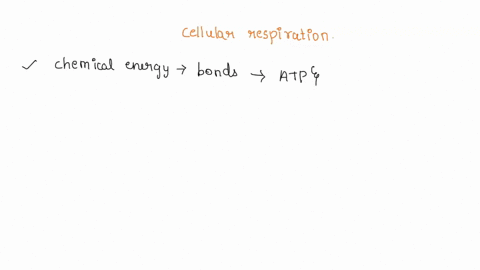 cellular respiration.
✓ chemical energy → bonds → ATP